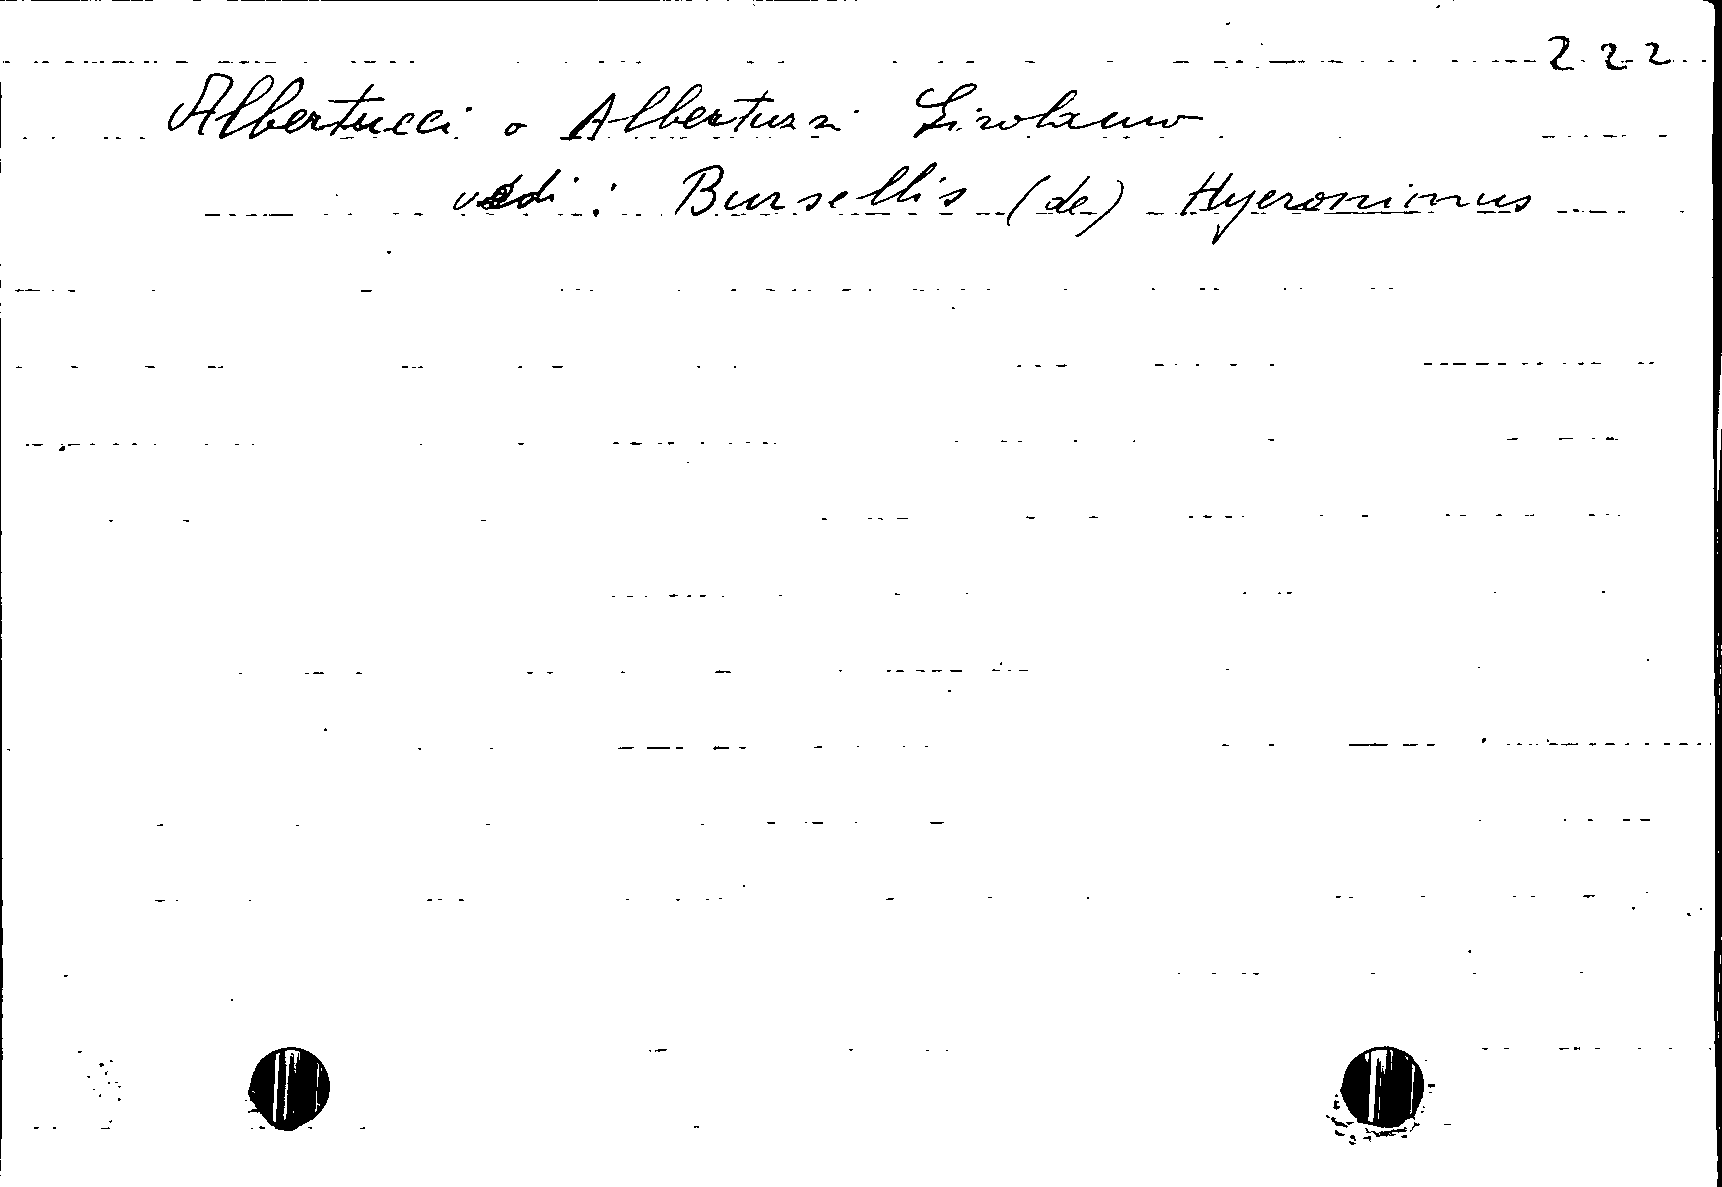 222
Albertucci o Albertuzzi Girolamo
vedi: Bursellis (de) Hyeronimus